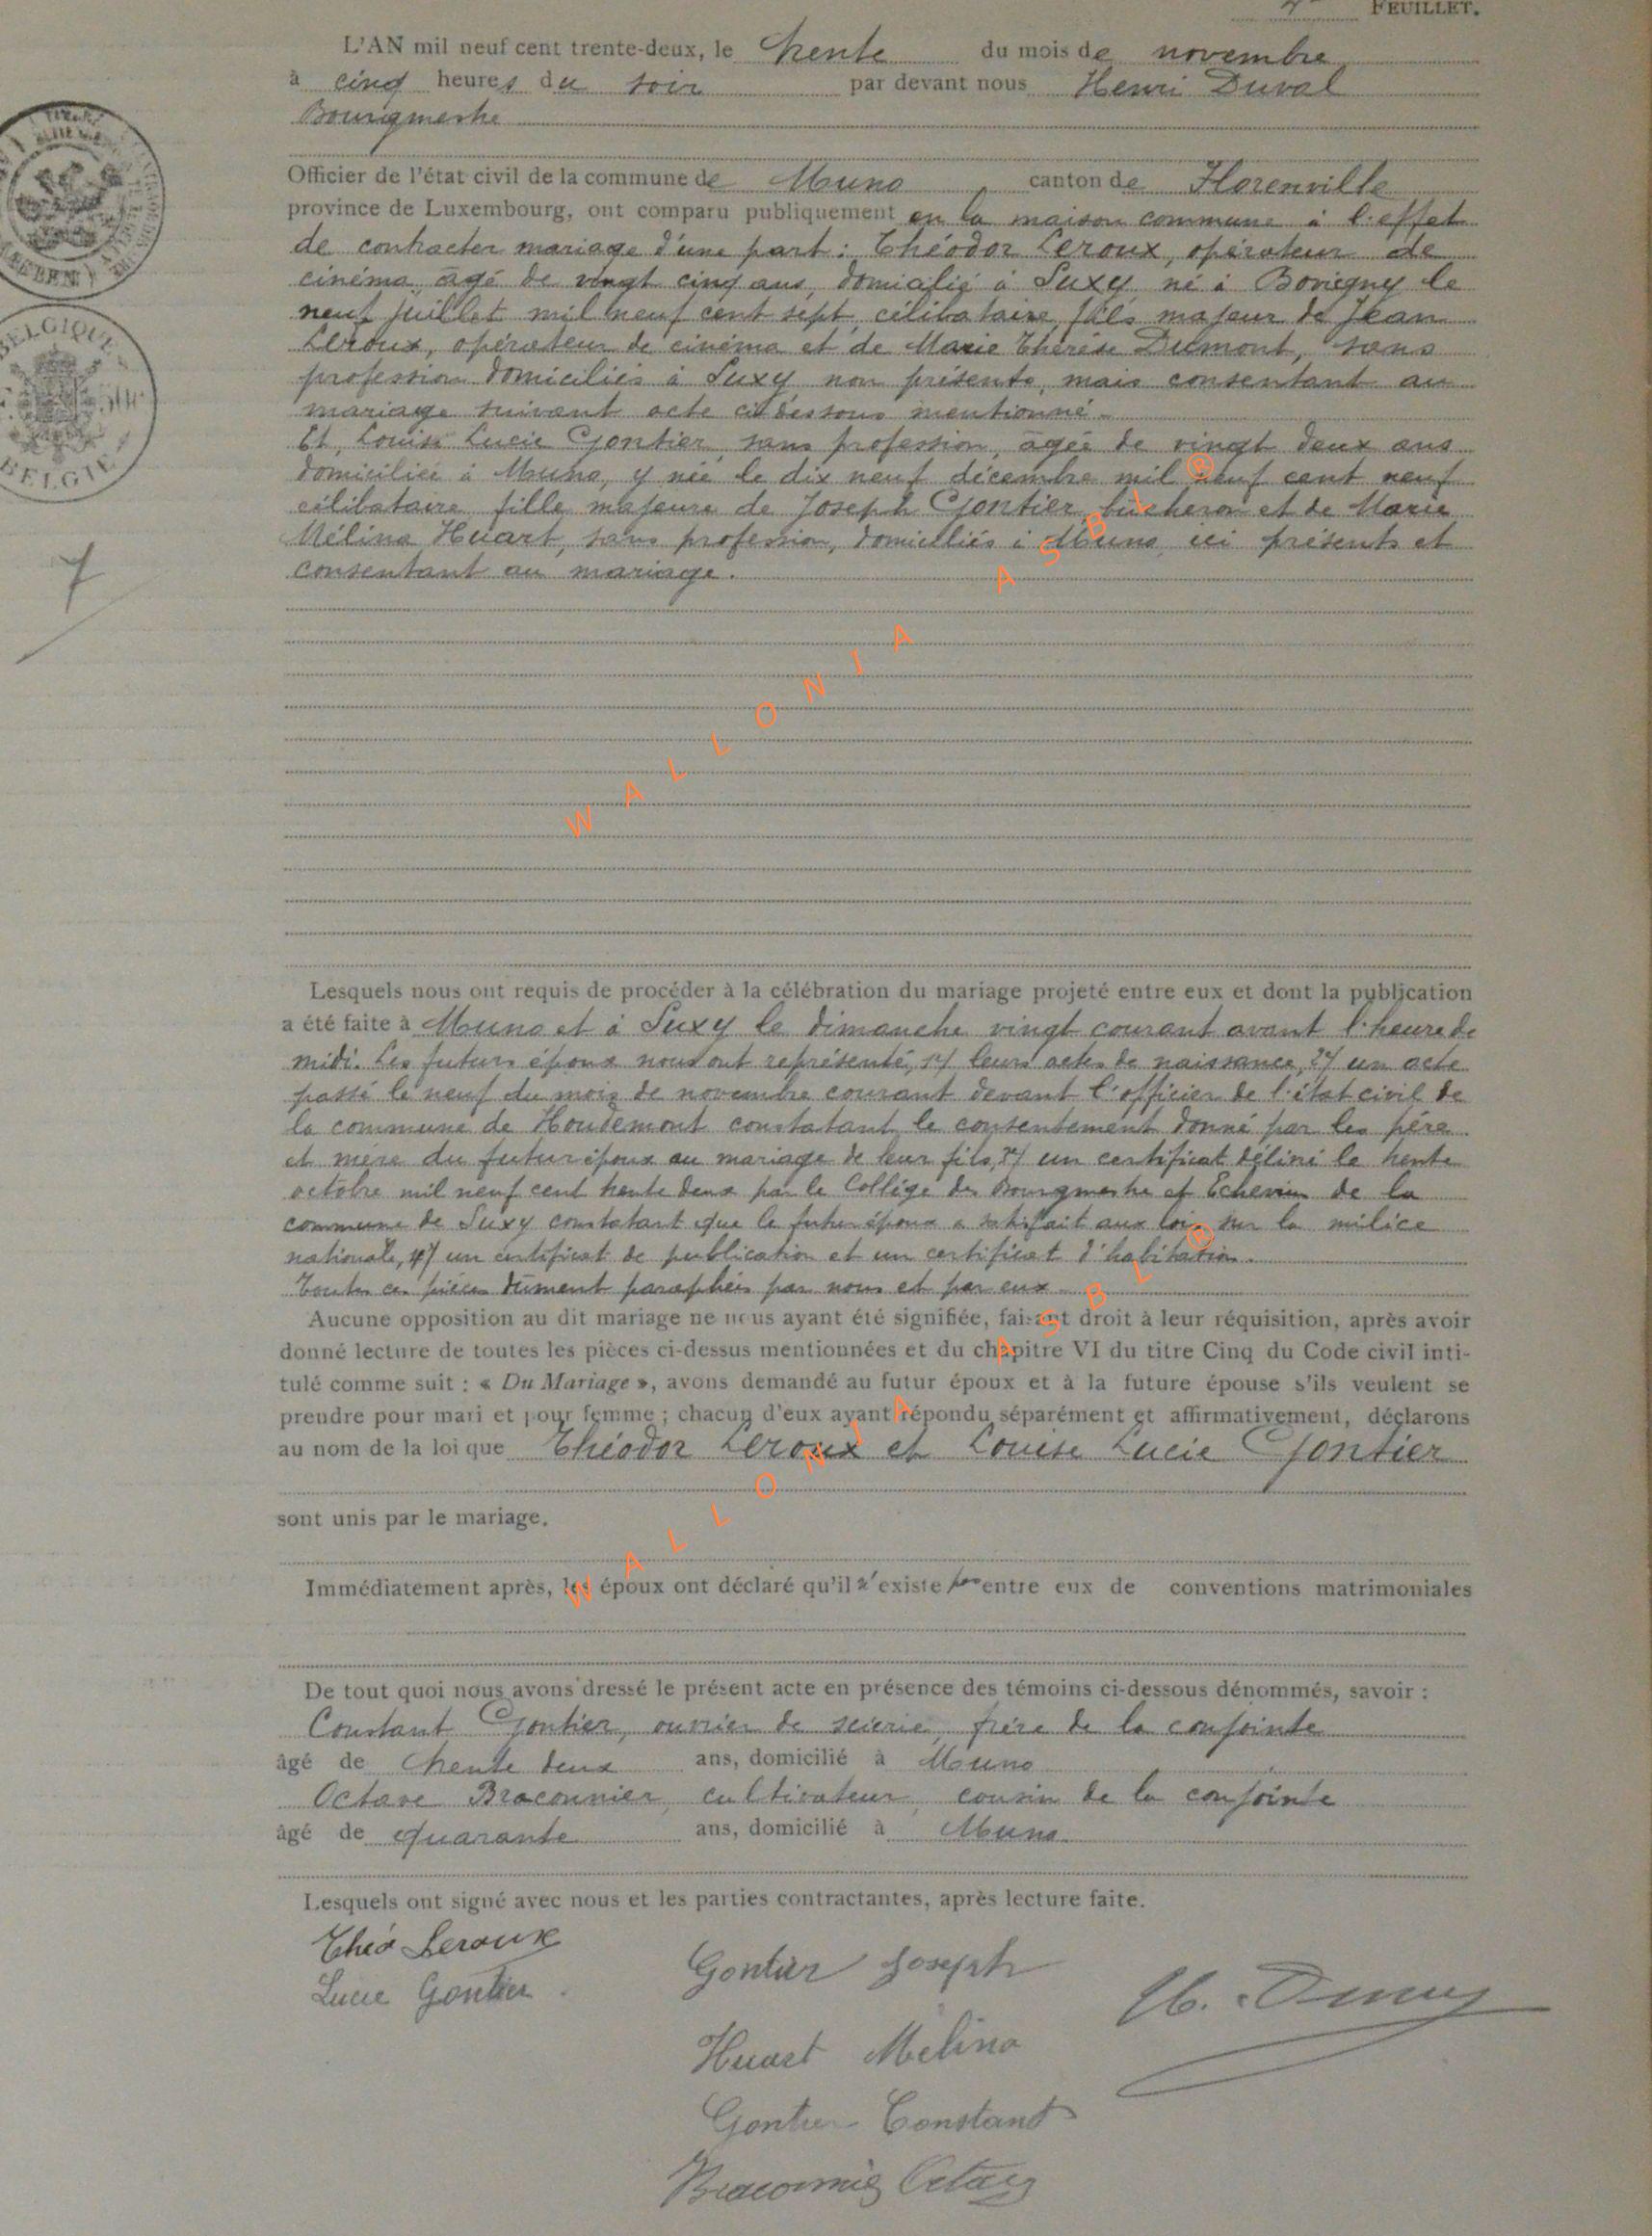 FEUILLET.
L'AN mil neuf cent trente-deux, le trente du mois de novembre
à cinq heures du soir par devant nous Henri Duval
Bourgmestre
Officier de l'état civil de la commune de Muno, canton de Florenville
province de Luxembourg, ont comparu publiquement en la maison commune à l'effet
de contracter mariage d'une part : Théodor Leroux, opérateur de
cinéma, âgé de vingt cinq ans, domicilié à Suxy, né à Bovigny le
neuf juillet mil neuf cent sept, célibataire, fils majeur de Jean
Leroux, opérateur de cinéma et de Marie Thérèse Dumont, sans
profession domiciliés à Suxy non présents, mais consentant au
mariage suivant acte ci dessous mentionné.
Et, Louise Lucie Gontier, sans profession, âgée de vingt deux ans
domiciliée à Muno, y née le dix neuf décembre mil neuf cent neuf
célibataire, fille majeure de Joseph Gontier, bûcheron et de Marie
Mélina Huart, sans profession, domiciliés à Muno, ici présents et
consentant au mariage.
7
BELGIQUE
BELGIE
WALLONIA ASBL ®
Lesquels nous ont requis de procéder à la célébration du mariage projeté entre eux et dont la publication
a été faite à Muno et à Suxy le dimanche vingt courant avant l'heure de
midi. Les futurs époux nous ont représenté, 1°/ leurs actes de naissance, 2°/ un acte
passé le neuf du mois de novembre courant devant l'officier de l'état civil de
la commune de Houdemont constatant le consentement donné par les père
et mère du futur époux au mariage de leur fils, 3°/ un certificat délivré le trente
octobre mil neuf cent trente deux par le Collège des Bourgmestre et Echevins de la
commune de Suxy constatant que le futur époux a satisfait aux lois sur la milice
nationale, 4°/ un certificat de publication et un certificat d'habitation.
Toutes ces pièces dûment paraphées par nous et par eux
Aucune opposition au dit mariage ne nous ayant été signifiée, faisant droit à leur réquisition, après avoir
donné lecture de toutes les pièces ci-dessus mentionnées et du chapitre VI du titre Cinq du Code civil inti-
tulé comme suit : « Du Mariage », avons demandé au futur époux et à la future épouse s'ils veulent se
prendre pour mari et pour femme ; chacun d'eux ayant répondu séparément et affirmativement, déclarons
au nom de la loi que Théodor Leroux et Louise Lucie Gontier
sont unis par le mariage.
Immédiatement après, les époux ont déclaré qu'il n'existe pas entre eux de conventions matrimoniales
WALLONIA ASBL ®
De tout quoi nous avons dressé le présent acte en présence des témoins ci-dessous dénommés, savoir :
Constant Gontier, ouvrier de scierie, frère de la conjointe
âgé de trente deux ans, domicilié à Muno
Octave Braconnier, cultivateur, cousin de la conjointe
âgé de quarante ans, domicilié à Muno
Lesquels ont signé avec nous et les parties contractantes, après lecture faite.
Théo Leroux
Lucie Gontier.
Gontier Joseph
Huart Mélina
Gontier Constant
Braconnier Octave